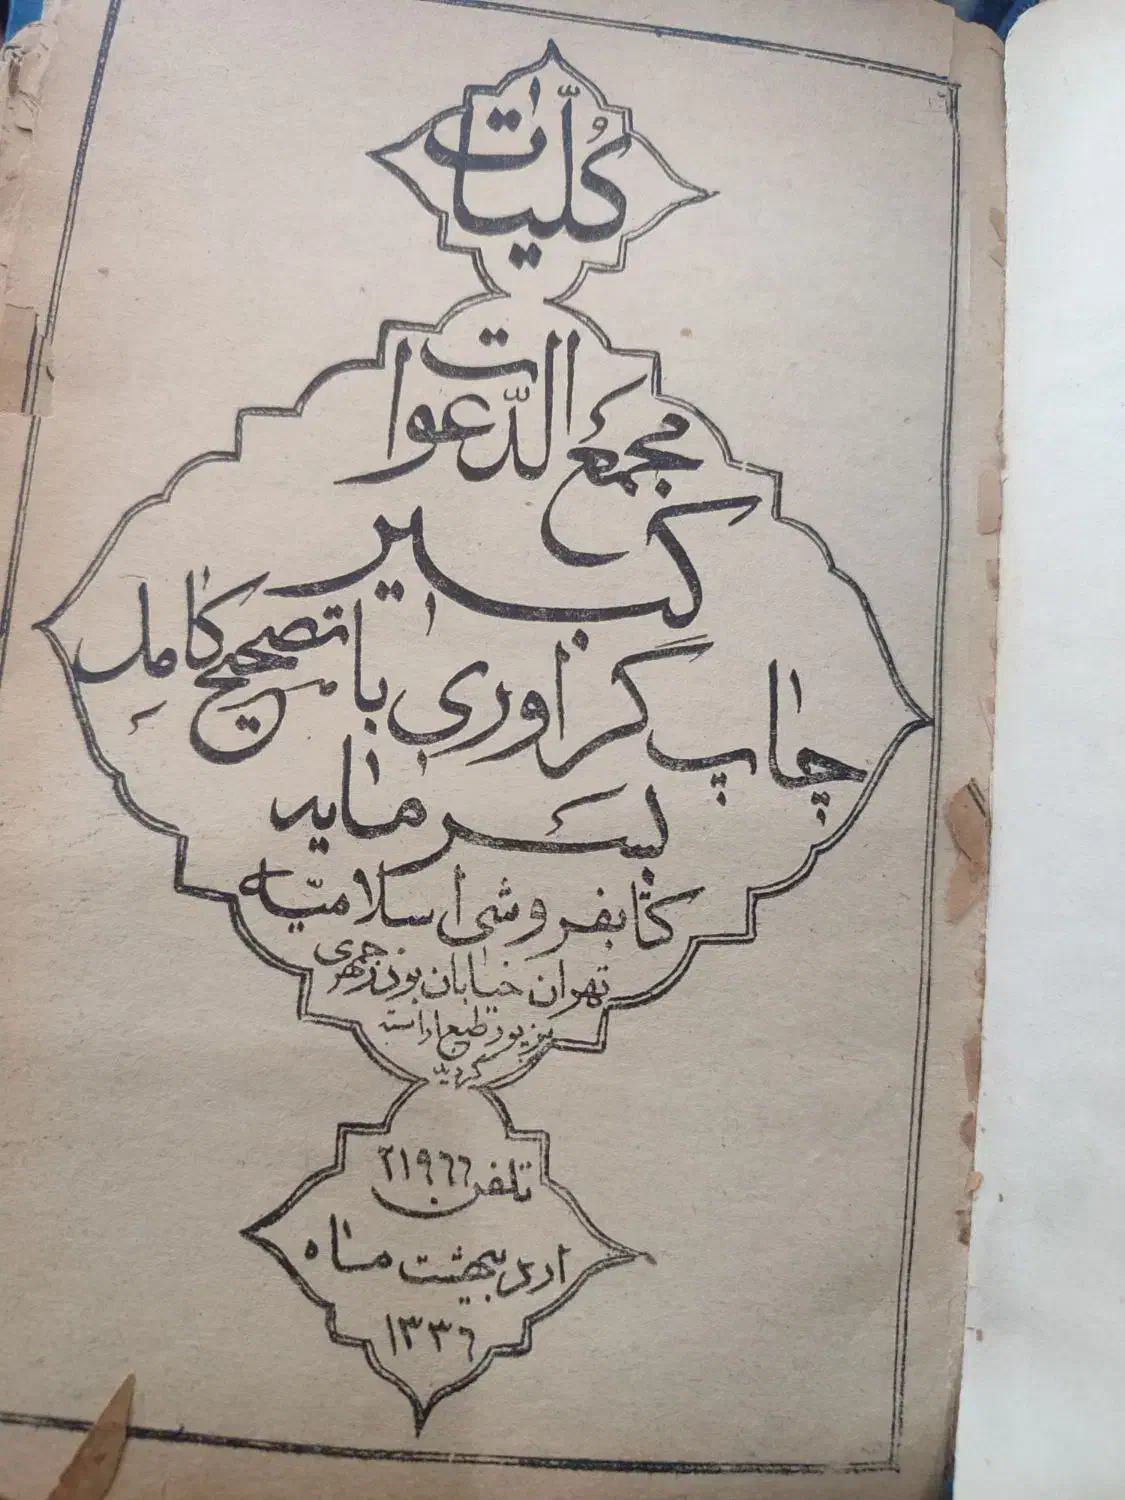 كُلّیات
مجمعَ الدّعوات
کبیر
چاپ گراوری با تصحیح کامِل
بسَرمایه
کتابفروشی اسلامیّه
تهران خیابان بوذرجمهری
بزیور طبع اراسته
گردید
تلفن ۲۱۹۶۶
اردیبهشت ماه
۱۳۳۶